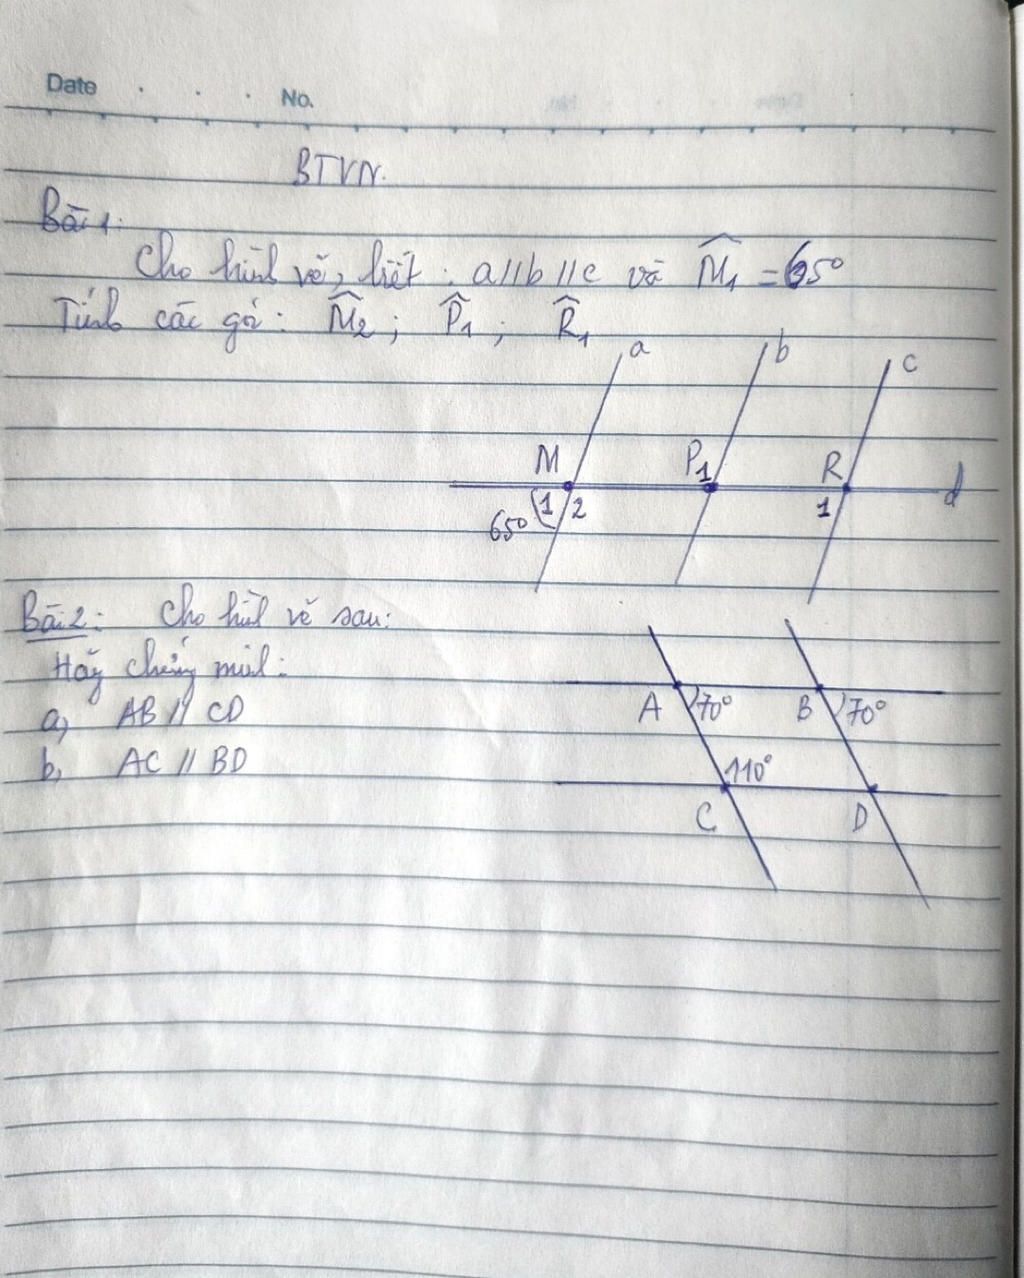 Date . . . No.
BTVN.
Bài 1:
Cho hình vẽ, biết : a//b//c và M̂₁ = 65°
Tính các góc : M̂₂ ; P̂₁ ; R̂₁
a b c
M P₁ R
d
1 2 1
65°
Bài 2: Cho hình vẽ sau:
Hãy chứng minh:
A 70° B 70°
a, AB // CD
b, AC // BD
110°
C D